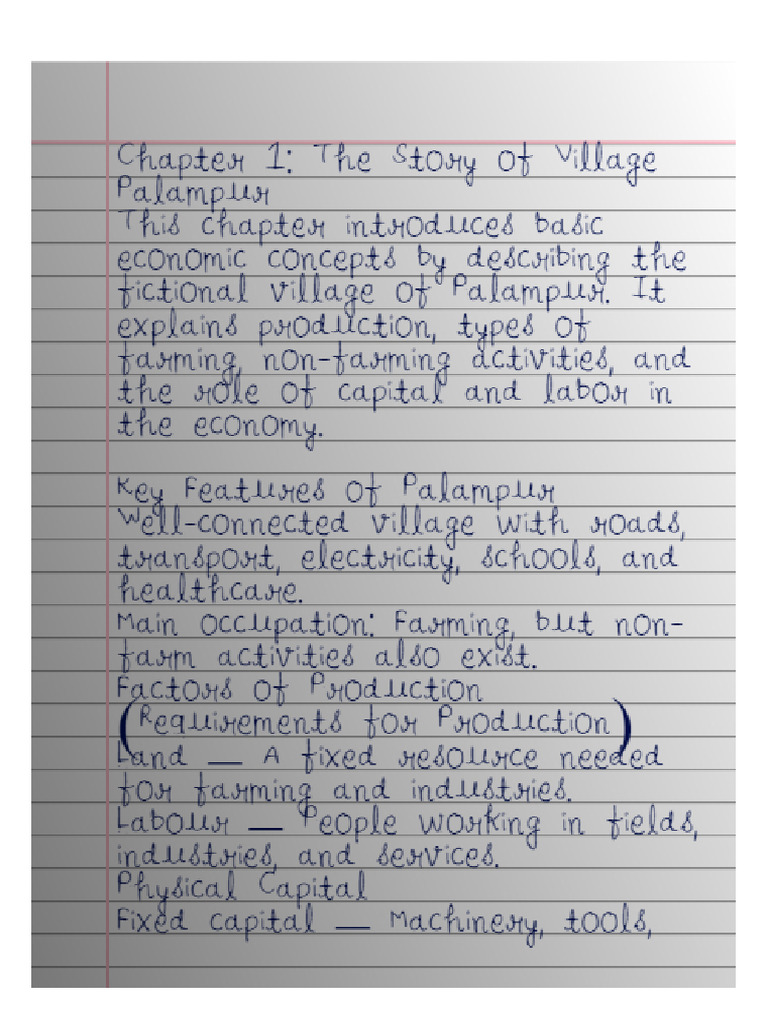 Chapter 1: The Story of Village
Palampur
This chapter introduces basic
economic concepts by describing the
fictional village of Palampur. It
explains production, types of
farming, non-farming activities, and
the role of capital and labor in
the economy.
Key Features of Palampur
Well-connected village with roads,
transport, electricity, schools, and
healthcare.
Main occupation: Farming, but non-
farm activities also exist.
Factors of Production
(Requirements for Production)
Land — A fixed resource needed
for farming and industries.
Labour — People working in fields,
industries, and services.
Physical Capital
Fixed capital — Machinery, tools,